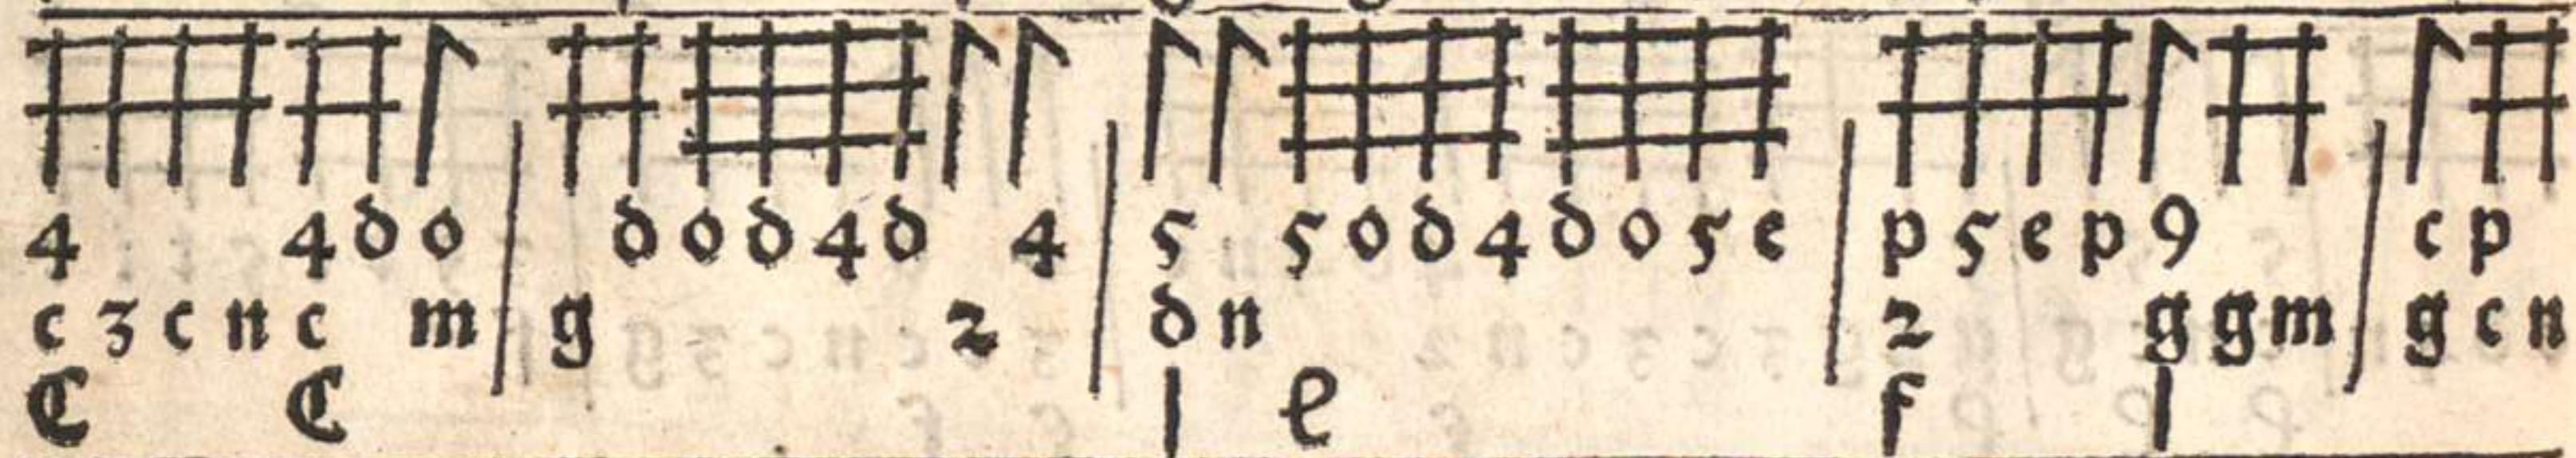 4 4 d o | d o d 4 d 4 | 5 5 o d 4 d o 5 e | p 5 e p 9 | c p
c 3 c n c m | g 2 | d n | 2 g g m | g c n
C C | | l e | f l |